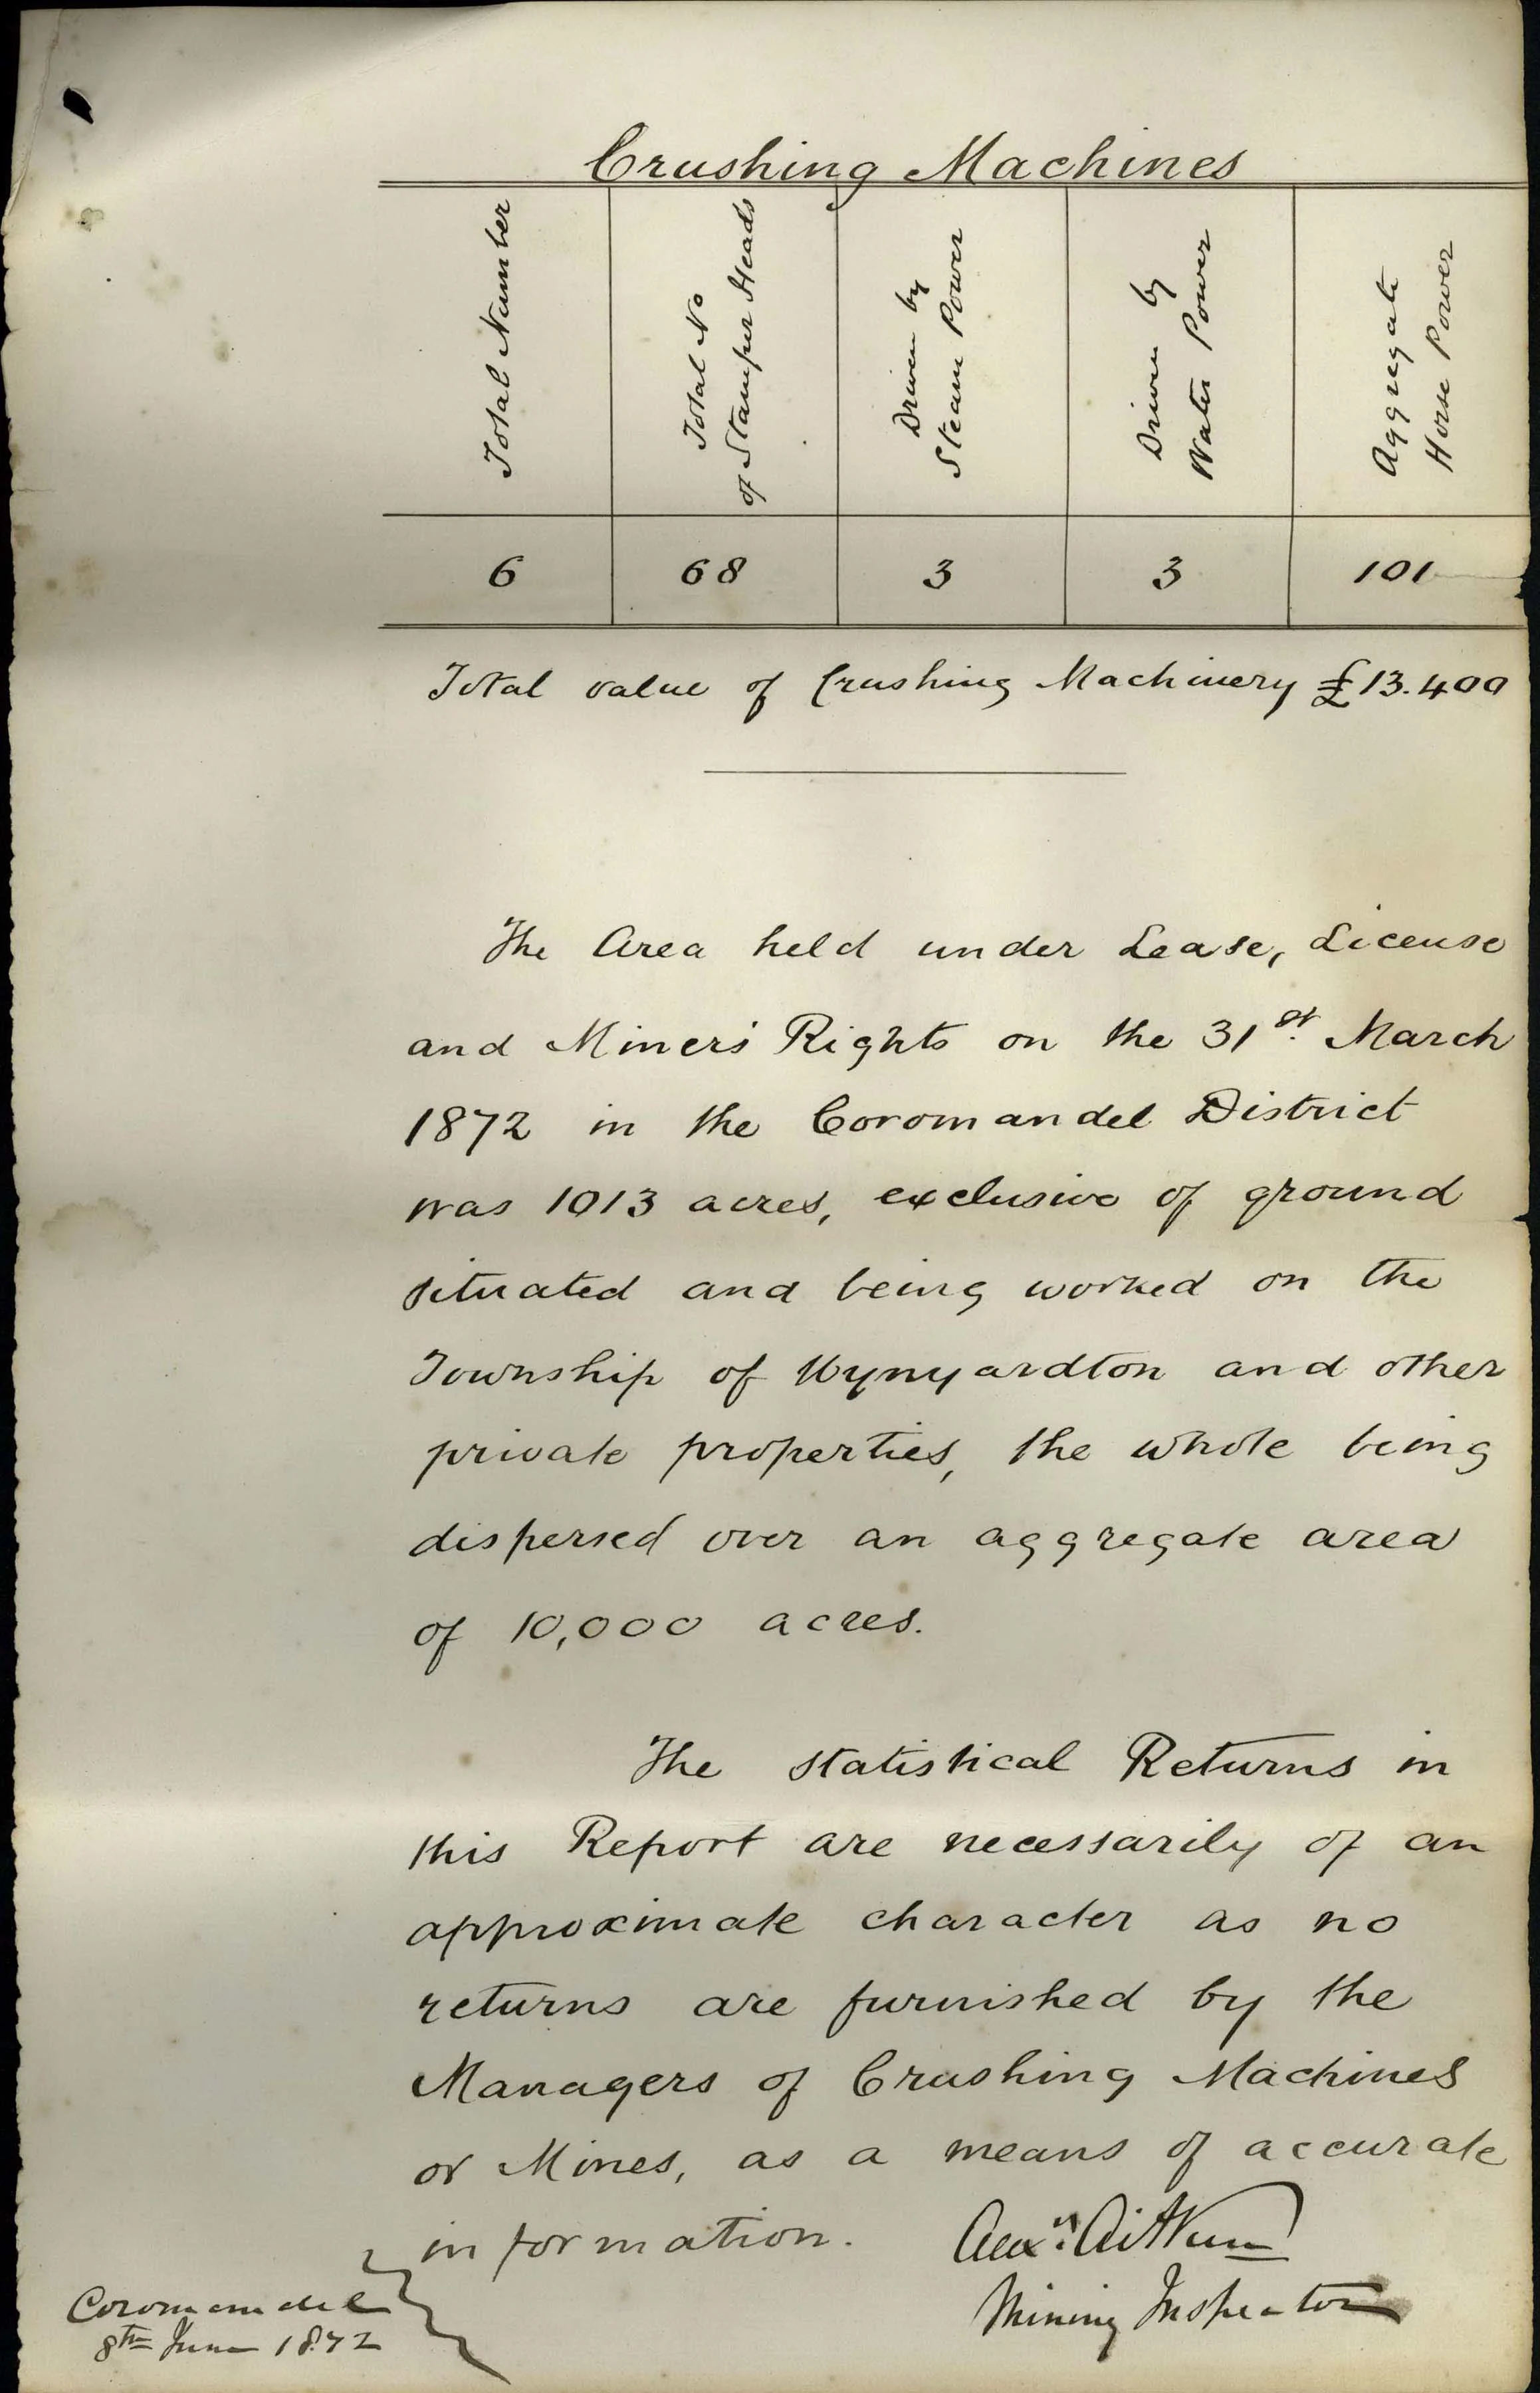 Crushing Machines
Total Number
Total No
of Stamper Heads
Driven by
Steam Power
Driven by
Water Power
Aggregate
Horse Power
6 68 3 3 101
Total value of Crushing Machinery £13.400
The Area held under Lease, License
and Miners' Rights on the 31st. March
1872 in the Coromandel District
was 1013 acres, exclusive of ground
situated and being worked on the
Township of Wynyardton and other
private properties, the whole being
dispersed over an aggregate area
of 10,000 acres.
The statistical Returns in
this Report are necessarily of an
approximate character as no
returns are furnished by the
Managers of Crushing Machines
or Mines, as a means of accurate
information.
Alexr. Aitken
Mining Inspector
Coromandel
8th June 1872